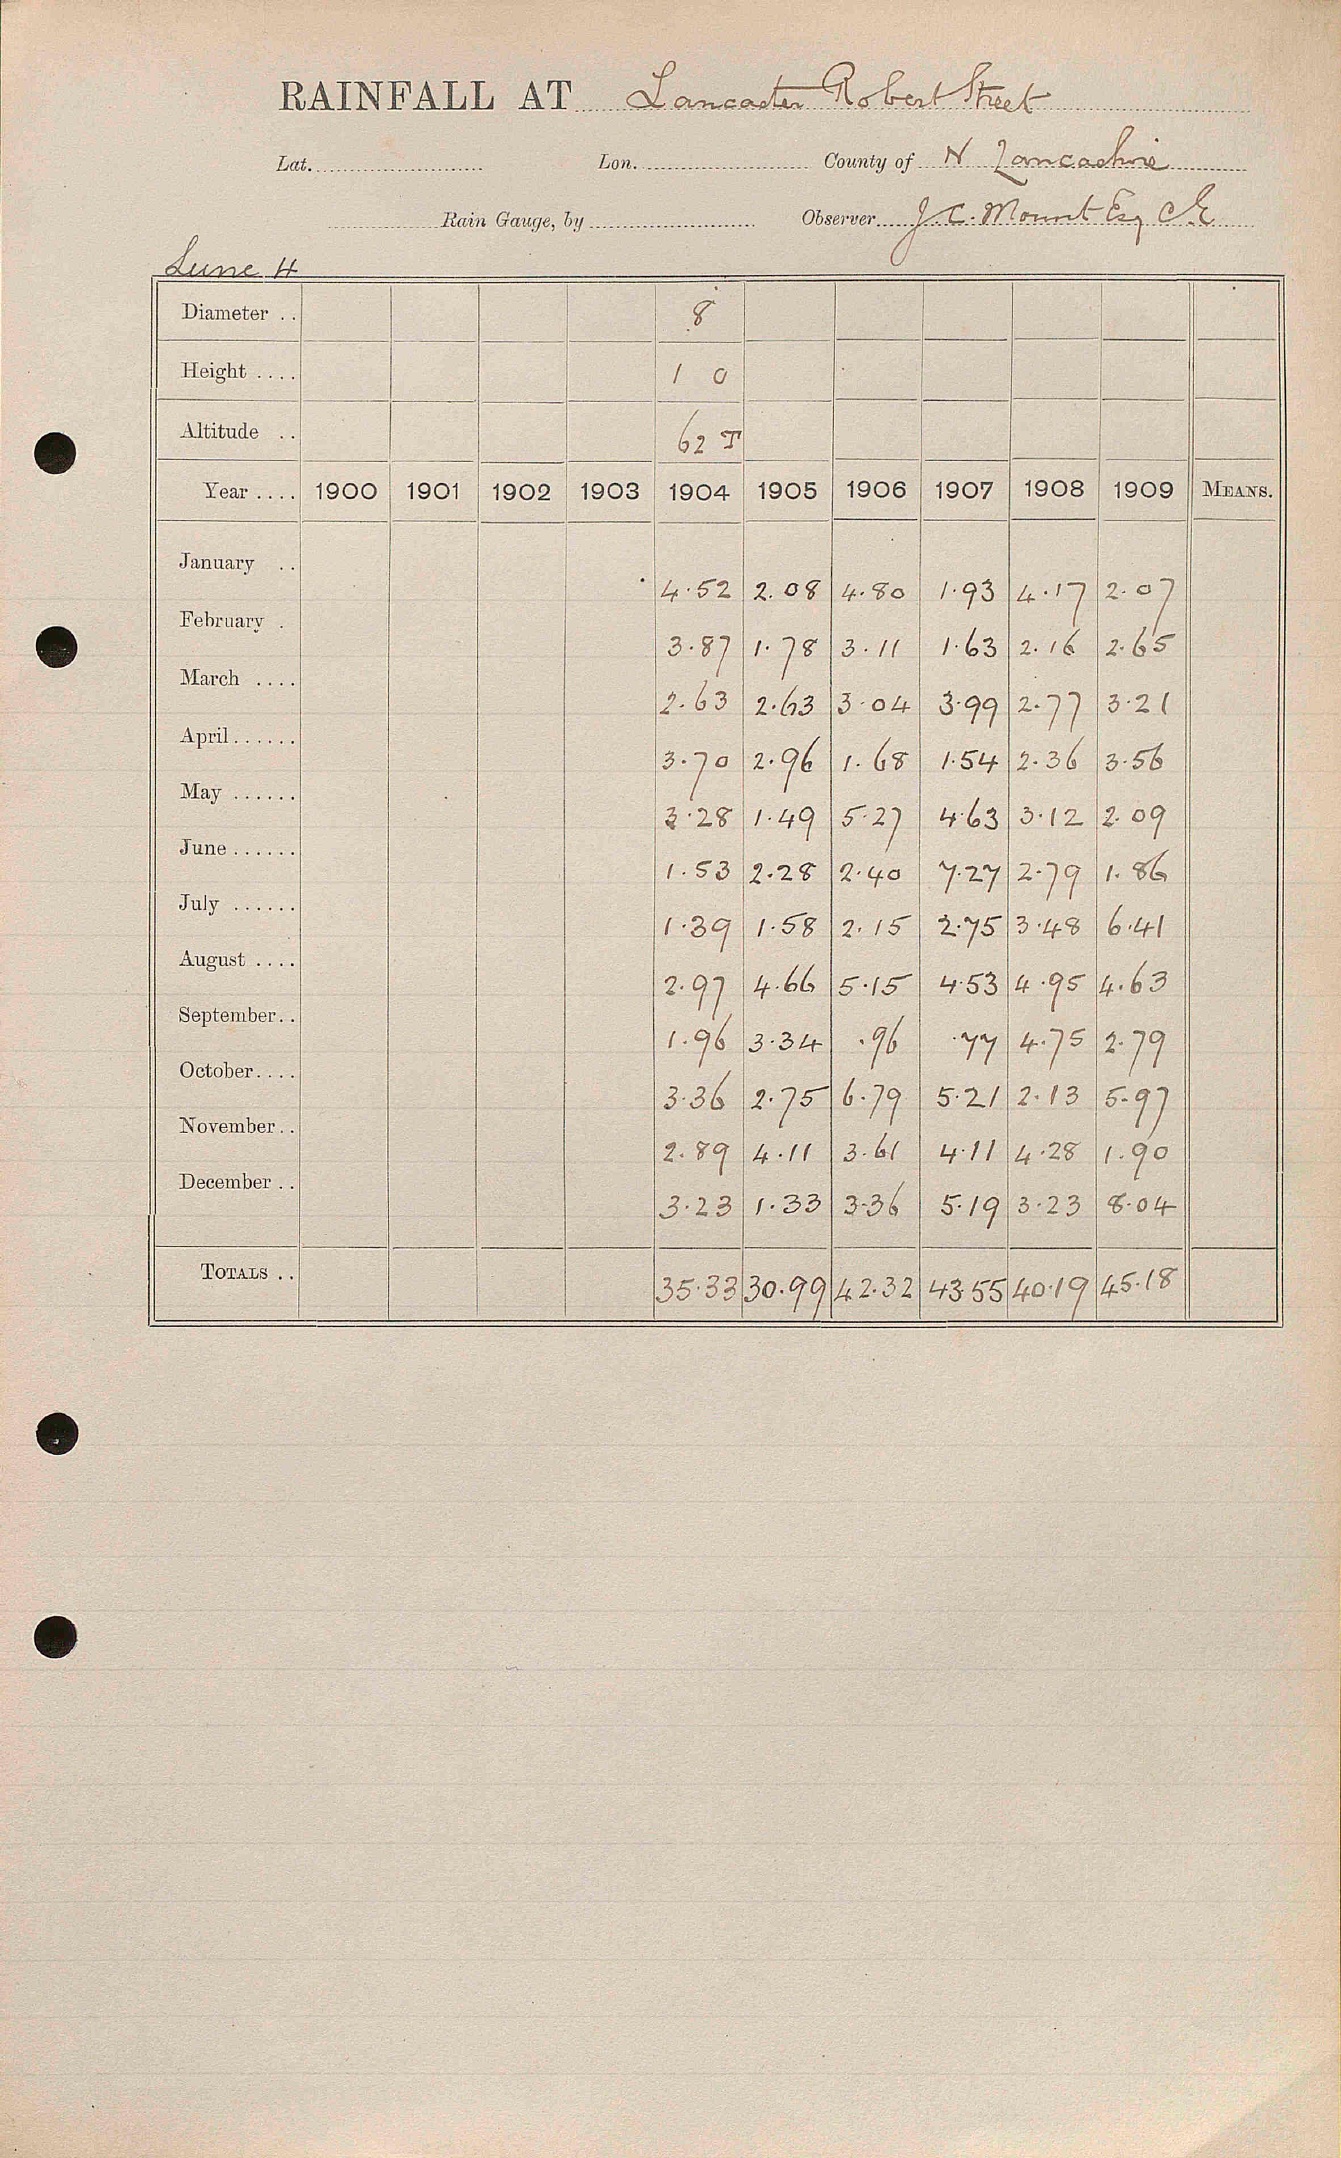 RAINFALL AT Lancaster Robert Street
Lat. Lon. County of N Lancashire
Rain Gauge, by Observer J. C. Mount Esq C.E
Lune 4
Diameter .. 8
Height .... 1 0
Altitude .. 62 T
Year .... 1900 1901 1902 1903 1904 1905 1906 1907 1908 1909 MEANS.
January .. 4.52 2.08 4.80 1.93 4.17 2.07
February . 3.87 1.78 3.11 1.63 2.16 2.65
March .... 2.63 2.63 3.04 3.99 2.77 3.21
April ...... 3.70 2.96 1.68 1.54 2.36 3.56
May ...... 3.28 1.49 5.27 4.63 3.12 2.09
June ...... 1.53 2.28 2.40 7.27 2.79 1.86
July ...... 1.39 1.58 2.15 2.75 3.48 6.41
August .... 2.97 4.66 5.15 4.53 4.95 4.63
September.. 1.96 3.34 .96 .77 4.75 2.79
October.... 3.36 2.75 6.79 5.21 2.13 5.97
November.. 2.89 4.11 3.61 4.11 4.28 1.90
December .. 3.23 1.33 3.36 5.19 3.23 8.04
TOTALS .. 35.33 30.99 42.32 43.55 40.19 45.18